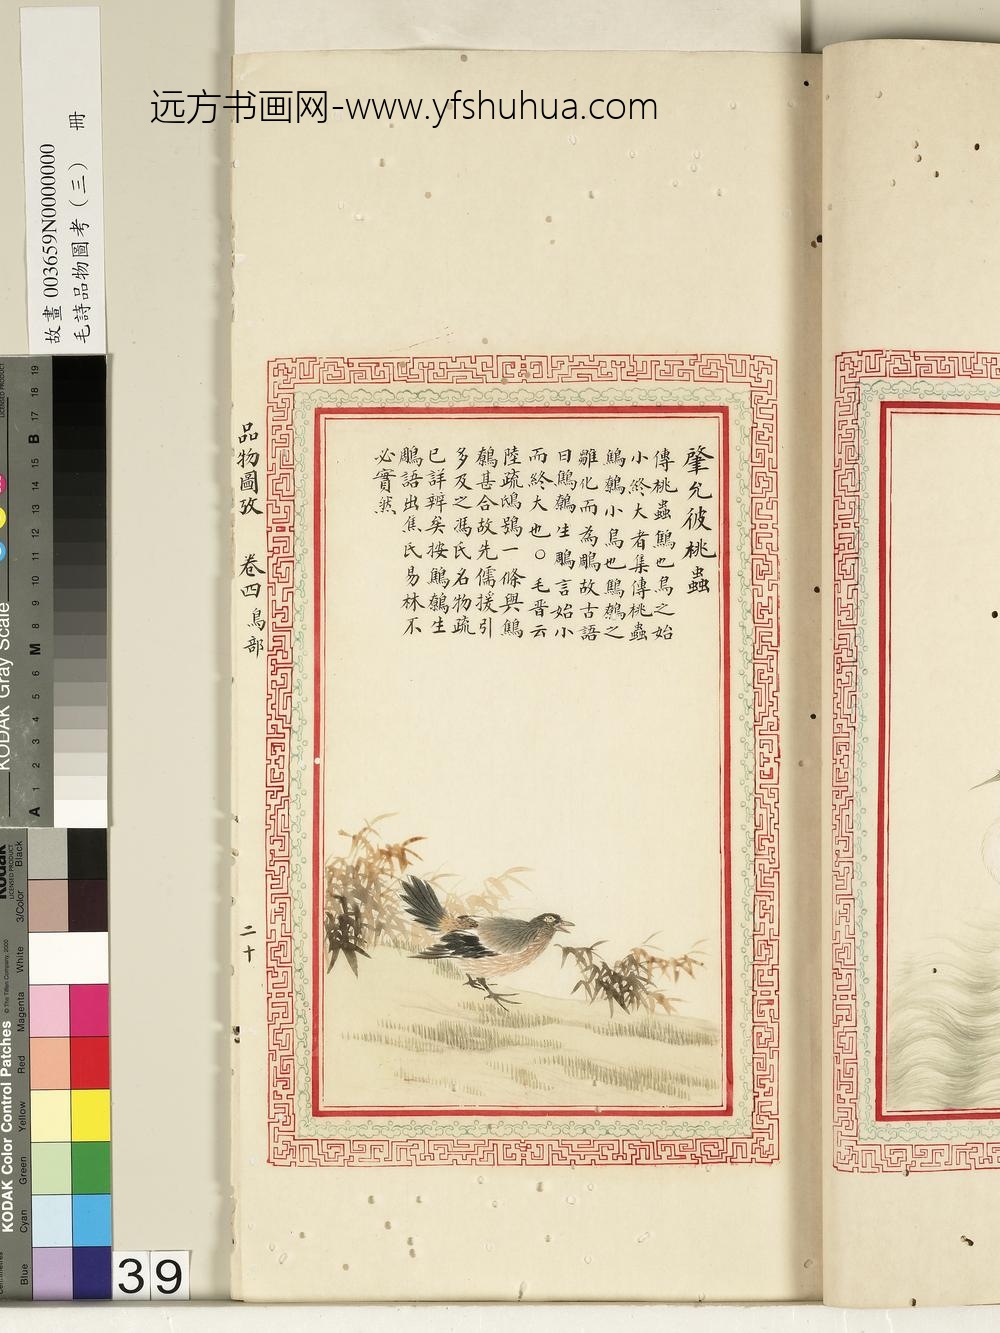 远方书画网-www.yfshuhua.com
故畫 003659N0000000
毛詩品物圖考（三） 冊
肇允彼桃蟲
傳桃蟲鷦也鳥之始
小終大者集傳桃蟲
鷦鷯小鳥也鷦鷯之
雛化而為鵰故古語
曰鷦鷯生鵰言始小
而終大也○毛晋云
陸疏鴟鴞一條與鷦
鷯甚合故先儒援引
多及之馮氏名物疏
已詳辨矣按鷦鷯生
鵰語出焦氏易林不
必實然
品物圖攷 卷四 鳥部
二十
KODAK Gray Scale
LICENSED PRODUCT
A 1 2 3 4 5 6 M 8 9 10 11 12 13 14 15 B 17 18 19
Kodak
LICENSED PRODUCT
KODAK Color Control Patches
© The Tiffen Company, 2000
Blue Cyan Green Yellow Red Magenta White 3/Color Black
39